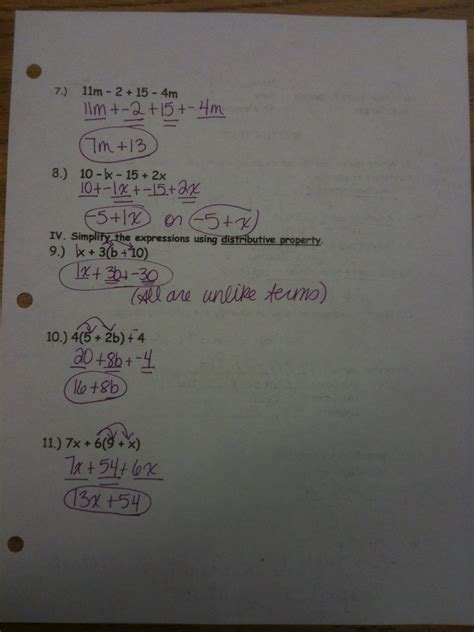 7.) 11m - 2 + 15 - 4m
11m + -2 + 15 + -4m
7m + 13
8.) 10 - 1x - 15 + 2x
10 + -1x + -15 + 2x
-5 + 1x or -5 + x
IV. Simplify the expressions using distributive property.
9.) 1x + 3(b + 10)
1x + 3b + -30
(All are unlike terms)
10.) 4(5 + 2b) + -4
20 + 8b + -4
16 + 8b
11.) 7x + 6(9 + x)
7x + 54 + 6x
13x + 54